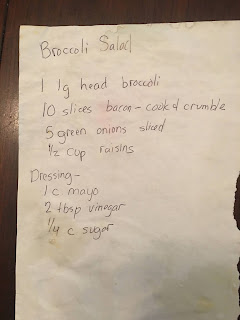 Broccoli Salad
1 lg head broccoli
10 slices bacon - cook & crumble
5 green onions sliced
1/2 cup raisins
Dressing -
1 c mayo
2 tbsp vinegar
1/4 c sugar